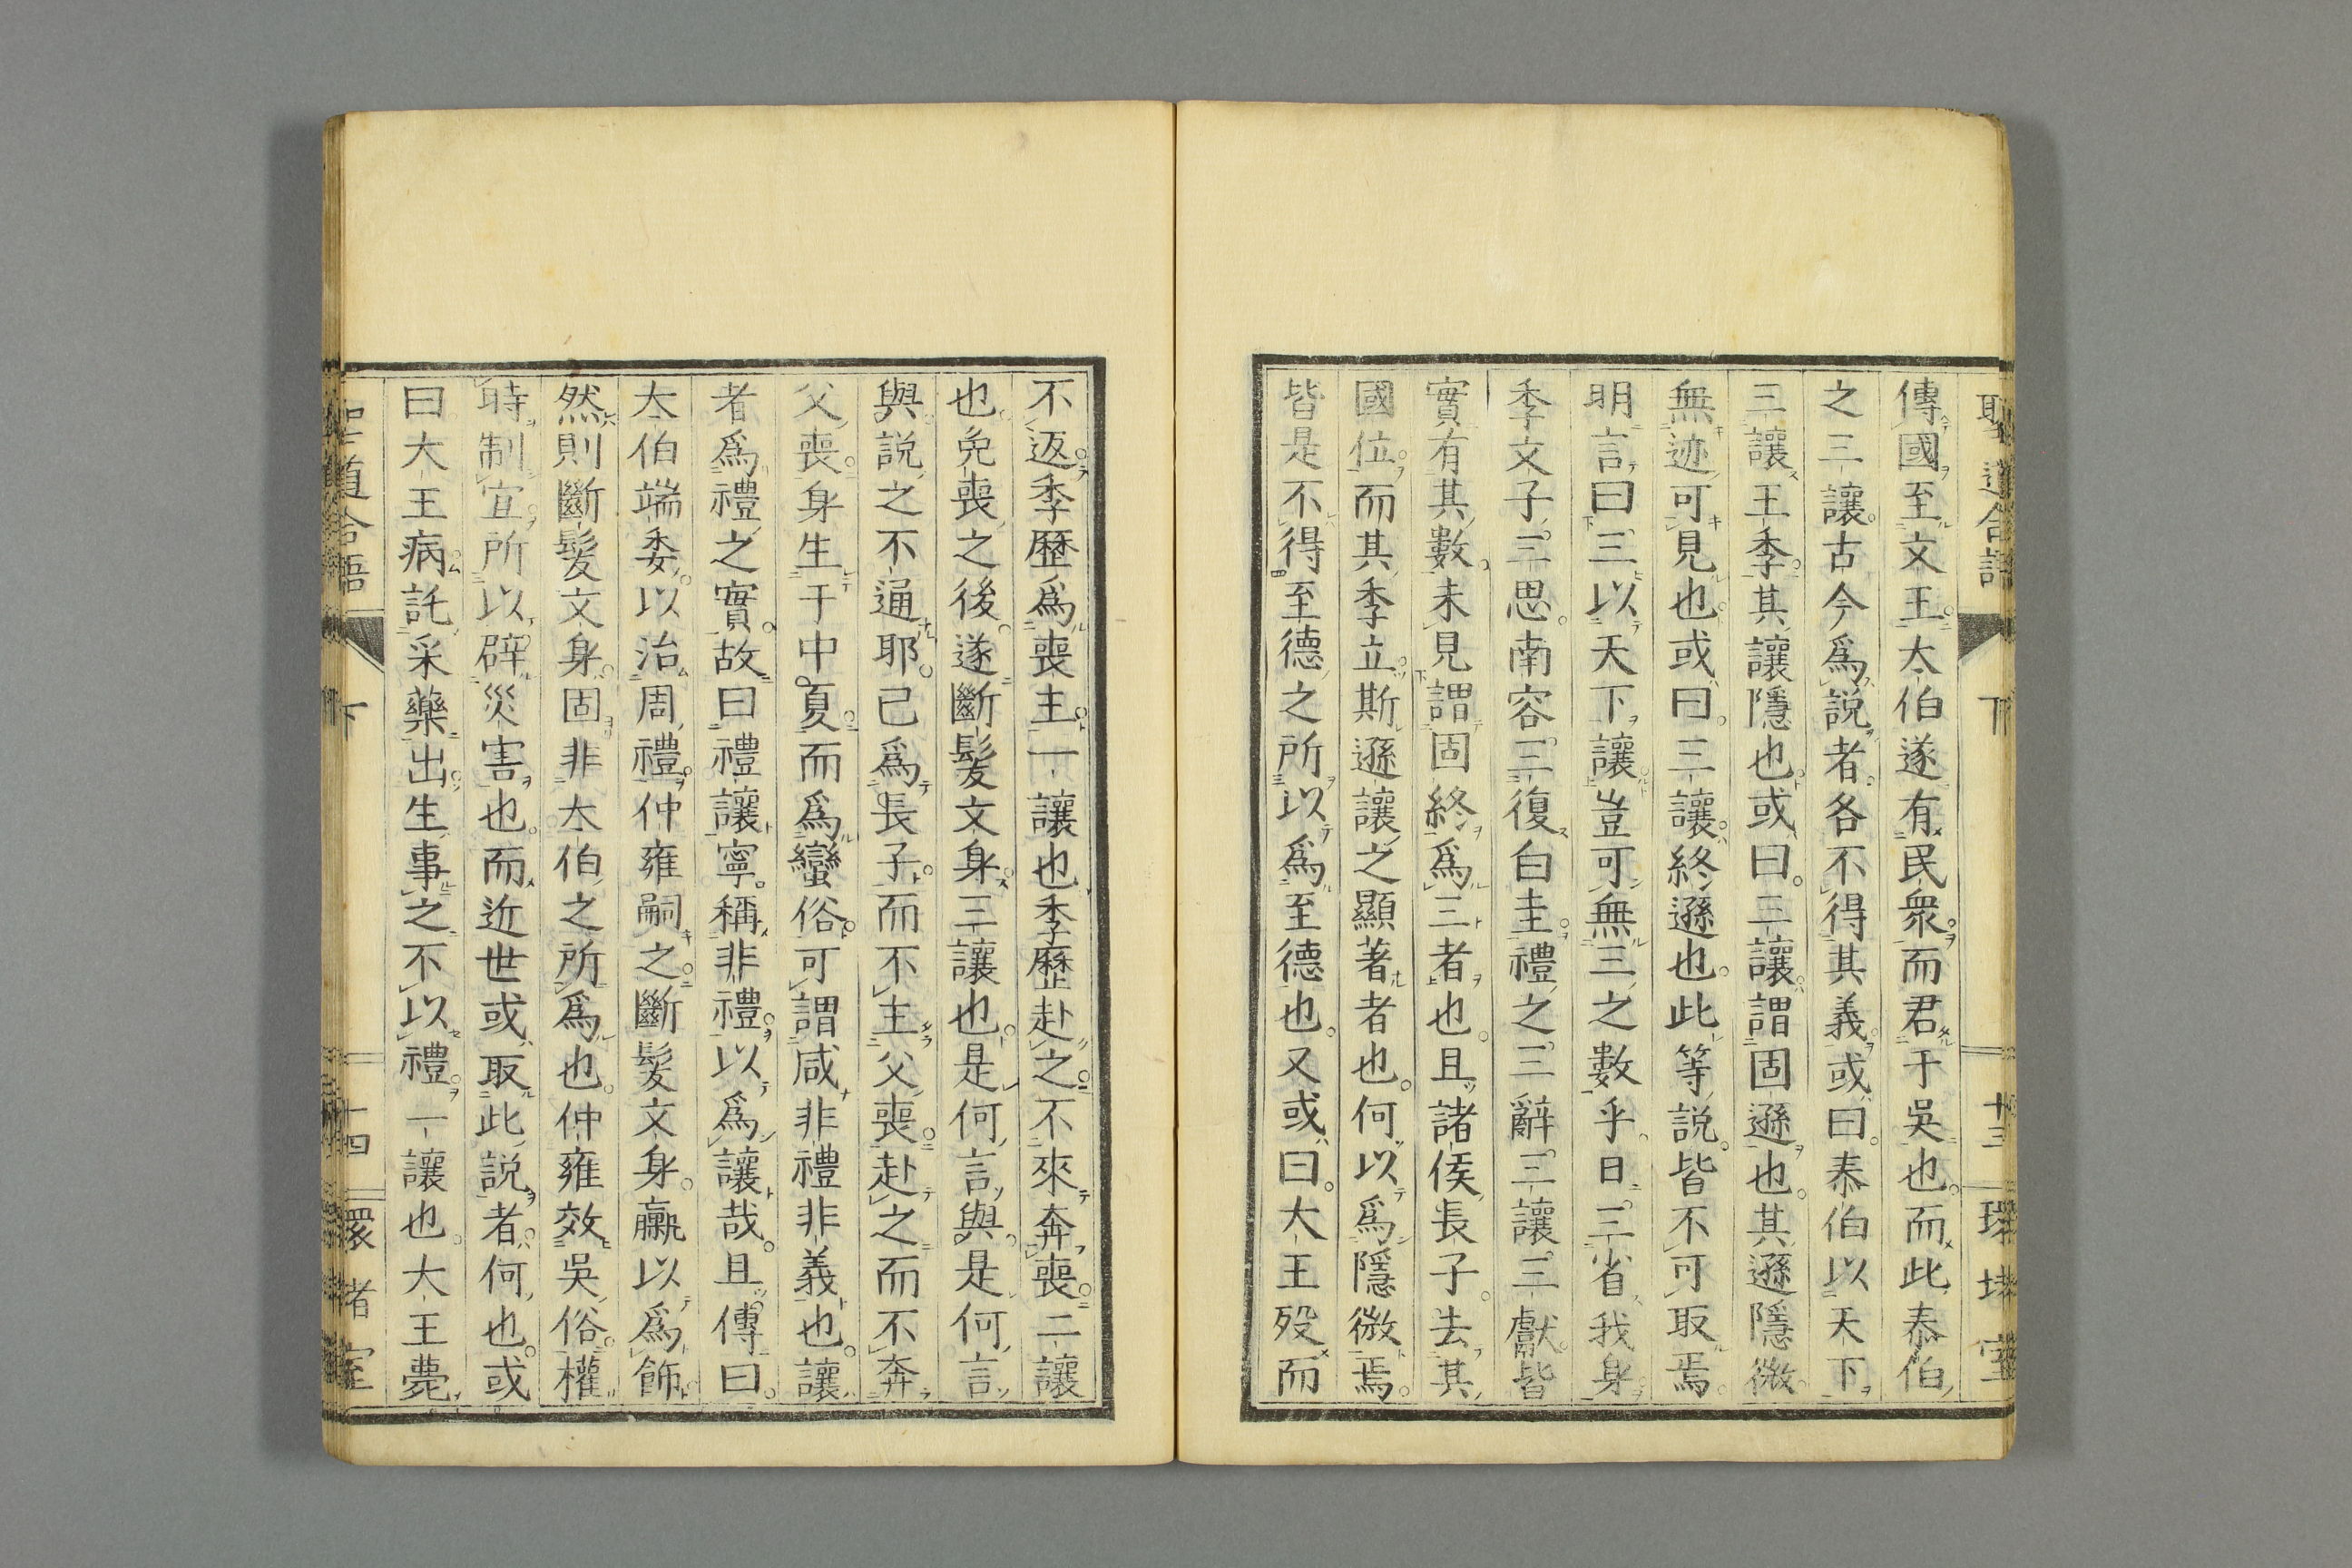 聖道合語 下 十三 環堵室
傳國至文王太伯遂有民衆而君于吳也而此泰伯
之三讓古今爲説者各不得其義或曰泰伯以天下
三讓王季其讓隱也或曰三讓謂固遜也其遜隱微
無迹可見也或曰三讓終遜也此等説皆不可取焉
明言曰三以天下讓豈可無三之數乎日三省我身
季文子三思南容三復白圭禮之三辭三讓三獻皆
實有其數未見謂固終爲三者也且諸侯長子去其
國位而其季立斯遜讓之顯著者也何以爲隱微焉
皆是不得至德之所以爲至德也又或曰大王歿而
不返季歷爲喪主一讓也季歷赴之不來奔喪二讓
也免喪之後遂斷髮文身三讓也是何言與是何言
與説之不通耶已爲長子而不主父喪赴之而不奔
父喪身生于中夏而爲蠻俗可謂咸非禮非義也讓
者爲禮之實故曰禮讓寧稱非禮以爲讓哉且傳曰
太伯端委以治周禮仲雍嗣之斷髮文身臝以爲飾
然則斷髮文身固非太伯之所爲也仲雍效吳俗權
時制宜所以辟災害也而近世或取此説者何也或
曰大王病託采藥出生事之不以禮一讓也大王薨
聖道合語 下 十四 環堵室